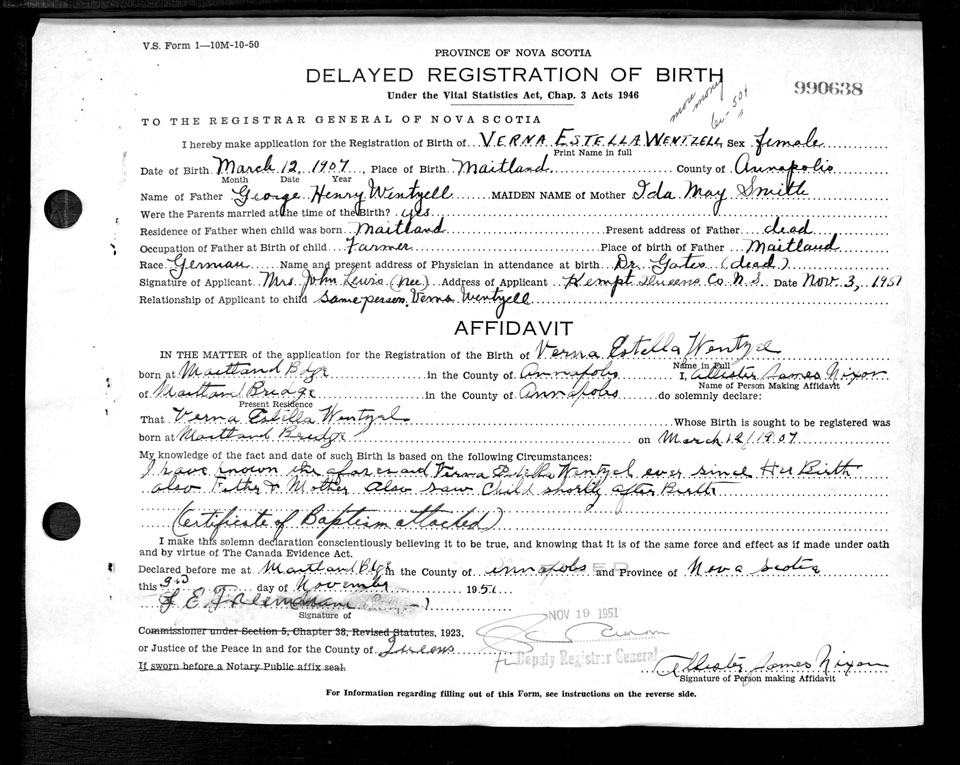 V.S. Form 1—10M-10-50
PROVINCE OF NOVA SCOTIA
DELAYED REGISTRATION OF BIRTH
990638
Under the Vital Statistics Act, Chap. 3 Acts 1946
more money
TO THE REGISTRAR GENERAL OF NOVA SCOTIA
I hereby make application for the Registration of Birth of VERNA ESTELLA WENTZELL Sex female
Print Name in full
Date of Birth March 12, 1907 Place of Birth Maitland County of Annapolis
Month Date Year
Name of Father George Henry Wentzell MAIDEN NAME of Mother Ida May Smith
Were the Parents married at the time of the Birth? yes
Residence of Father when child was born Maitland Present address of Father dead
Occupation of Father at Birth of child Farmer Place of birth of Father Maitland
Race German Name and present address of Physician in attendance at birth Dr. Gates (dead)
Signature of Applicant Mrs John Lewis (nee) Address of Applicant Kempt Queens Co N.S. Date Nov. 3, 1951
Relationship of Applicant to child same person, Verna Wentzell
AFFIDAVIT
IN THE MATTER of the application for the Registration of the Birth of Verna Estella Wentzel
Name in Full
born at Maitland Bdge in the County of Annapolis I, Allister James Nixon
Name of Person Making Affidavit
of Maitland Bridge in the County of Annapolis do solemnly declare:
Present Residence
That Verna Estella Wentzal Whose Birth is sought to be registered was
born at Maitland Bridge on March 12/1907
My knowledge of the fact and date of such Birth is based on the following Circumstances:
I have known the aforesaid Verna Estella Wentzel ever since Her Birth
also Father & Mother also saw Child shortly after Birth
(Certificate of Baptism attached)
I make this solemn declaration conscientiously believing it to be true, and knowing that it is of the same force and effect as if made under oath
and by virtue of The Canada Evidence Act.
Declared before me at Maitland Bdge in the County of Annapolis and Province of Nova Scotia
this 3rd day of November 1951
Signature of
NOV 19 1951
Commissioner under Section 5, Chapter 38, Revised Statutes, 1923,
or Justice of the Peace in and for the County of Queens
Deputy Registrar General
If sworn before a Notary Public affix seal.
Allister James Nixon
Signature of Person making Affidavit
For Information regarding filling out of this Form, see instructions on the reverse side.